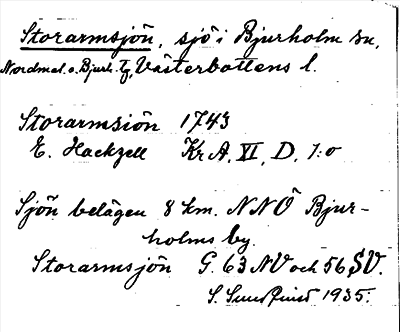 Storarmsjön, sjö i Bjurholm sn,
Nordmal. o. Bjurh. tg, Västerbottens l.
Storarmsiön 1743
E. Hackzell Kr A, VI, D, 1:o
Sjön belägen 8 km. NNÖ Bjur-
holms by.
Storarmsjön G. 63 NV och 56 SV.
S. Sundqvist 1935.